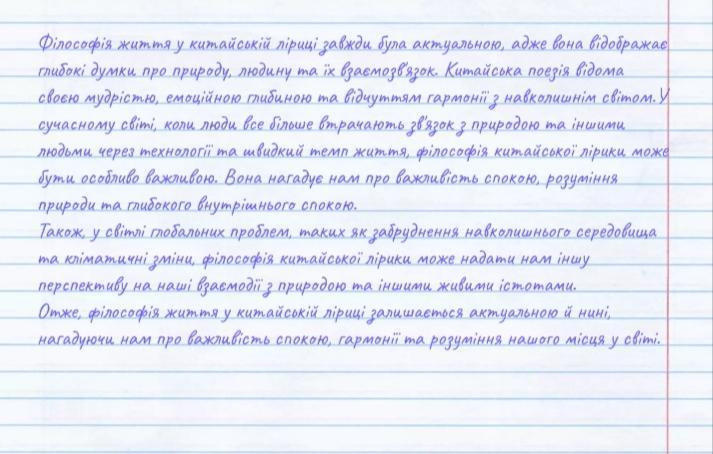 Філософія життя у китайській ліриці завжди була актуальною, адже вона відображає
глибокі думки про природу, людину та їх взаємозв'язок. Китайська поезія відома
своєю мудрістю, емоційною глибиною та відчуттям гармонії з навколишнім світом. У
сучасному світі, коли люди все більше втрачають зв'язок з природою та іншими
людьми через технології та швидкий темп життя, філософія китайської лірики може
бути особливо важливою. Вона нагадує нам про важливість спокою, розуміння
природи та глибокого внутрішнього спокою.
Також, у світлі глобальних проблем, таких як забруднення навколишнього середовища
та кліматичні зміни, філософія китайської лірики може надати нам іншу
перспективу на наші взаємодії з природою та іншими живими істотами.
Отже, філософія життя у китайській ліриці залишається актуальною й нині,
нагадуючи нам про важливість спокою, гармонії та розуміння нашого місця у світі.